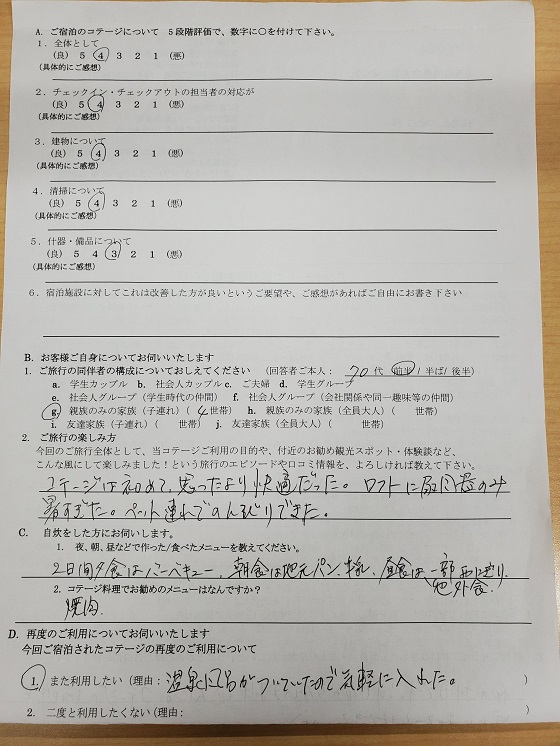 A. ご宿泊のコテージについて 5段階評価で、数字に○を付けて下さい。
1. 全体として
(良) 5 4 3 2 1 (悪)
(具体的にご感想)
2. チェックイン・チェックアウトの担当者の対応が
(良) 5 4 3 2 1 (悪)
(具体的にご感想)
3. 建物について
(良) 5 4 3 2 1 (悪)
(具体的にご感想)
4. 清掃について
(良) 5 4 3 2 1 (悪)
(具体的にご感想)
5. 什器・備品について
(良) 5 4 3 2 1 (悪)
(具体的にご感想)
6. 宿泊施設に対してこれは改善した方が良いというご要望や、ご感想があればご自由にお書き下さい
B. お客様ご自身についてお伺いいたします
1. ご旅行の同伴者の構成についておしえてください (回答者ご本人: 70代 前半/半ば/後半)
a. 学生カップル b. 社会人カップル c. ご夫婦 d. 学生グループ
e. 社会人グループ(学生時代の仲間) f. 社会人グループ(会社関係や同一趣味等の仲間)
g. 親族のみの家族(子連れ)( 4世帯) h. 親族のみの家族(全員大人)( 世帯)
i. 友達家族(子連れ)( 世帯) j. 友達家族(全員大人)( 世帯)
2. ご旅行の楽しみ方
今回のご旅行全体として、当コテージご利用の目的や、付近のお勧め観光スポット・体験談など、
こんな風にして楽しみました!という旅行のエピソードや口コミ情報を、よろしければ教えて下さい。
コテージは初めて、思ったより快適だった。ロフトに扇風器のみ
暑すぎた。ペット連れでのんびりできた。
C. 自炊をした方にお伺いします。
1. 夜、朝、昼などで作った/食べたメニューを教えてください。
2日間夕食はバーベキュー、朝食は地元パン、牛乳、昼食は、一部
他外食.
2. コテージ料理でお勧めのメニューはなんですか?
焼肉.
D. 再度のご利用についてお伺いいたします
今回ご宿泊されたコテージの再度のご利用について
1. また利用したい(理由: 温泉風呂がついていたので気軽に入れた。 )
2. 二度と利用したくない(理由: )